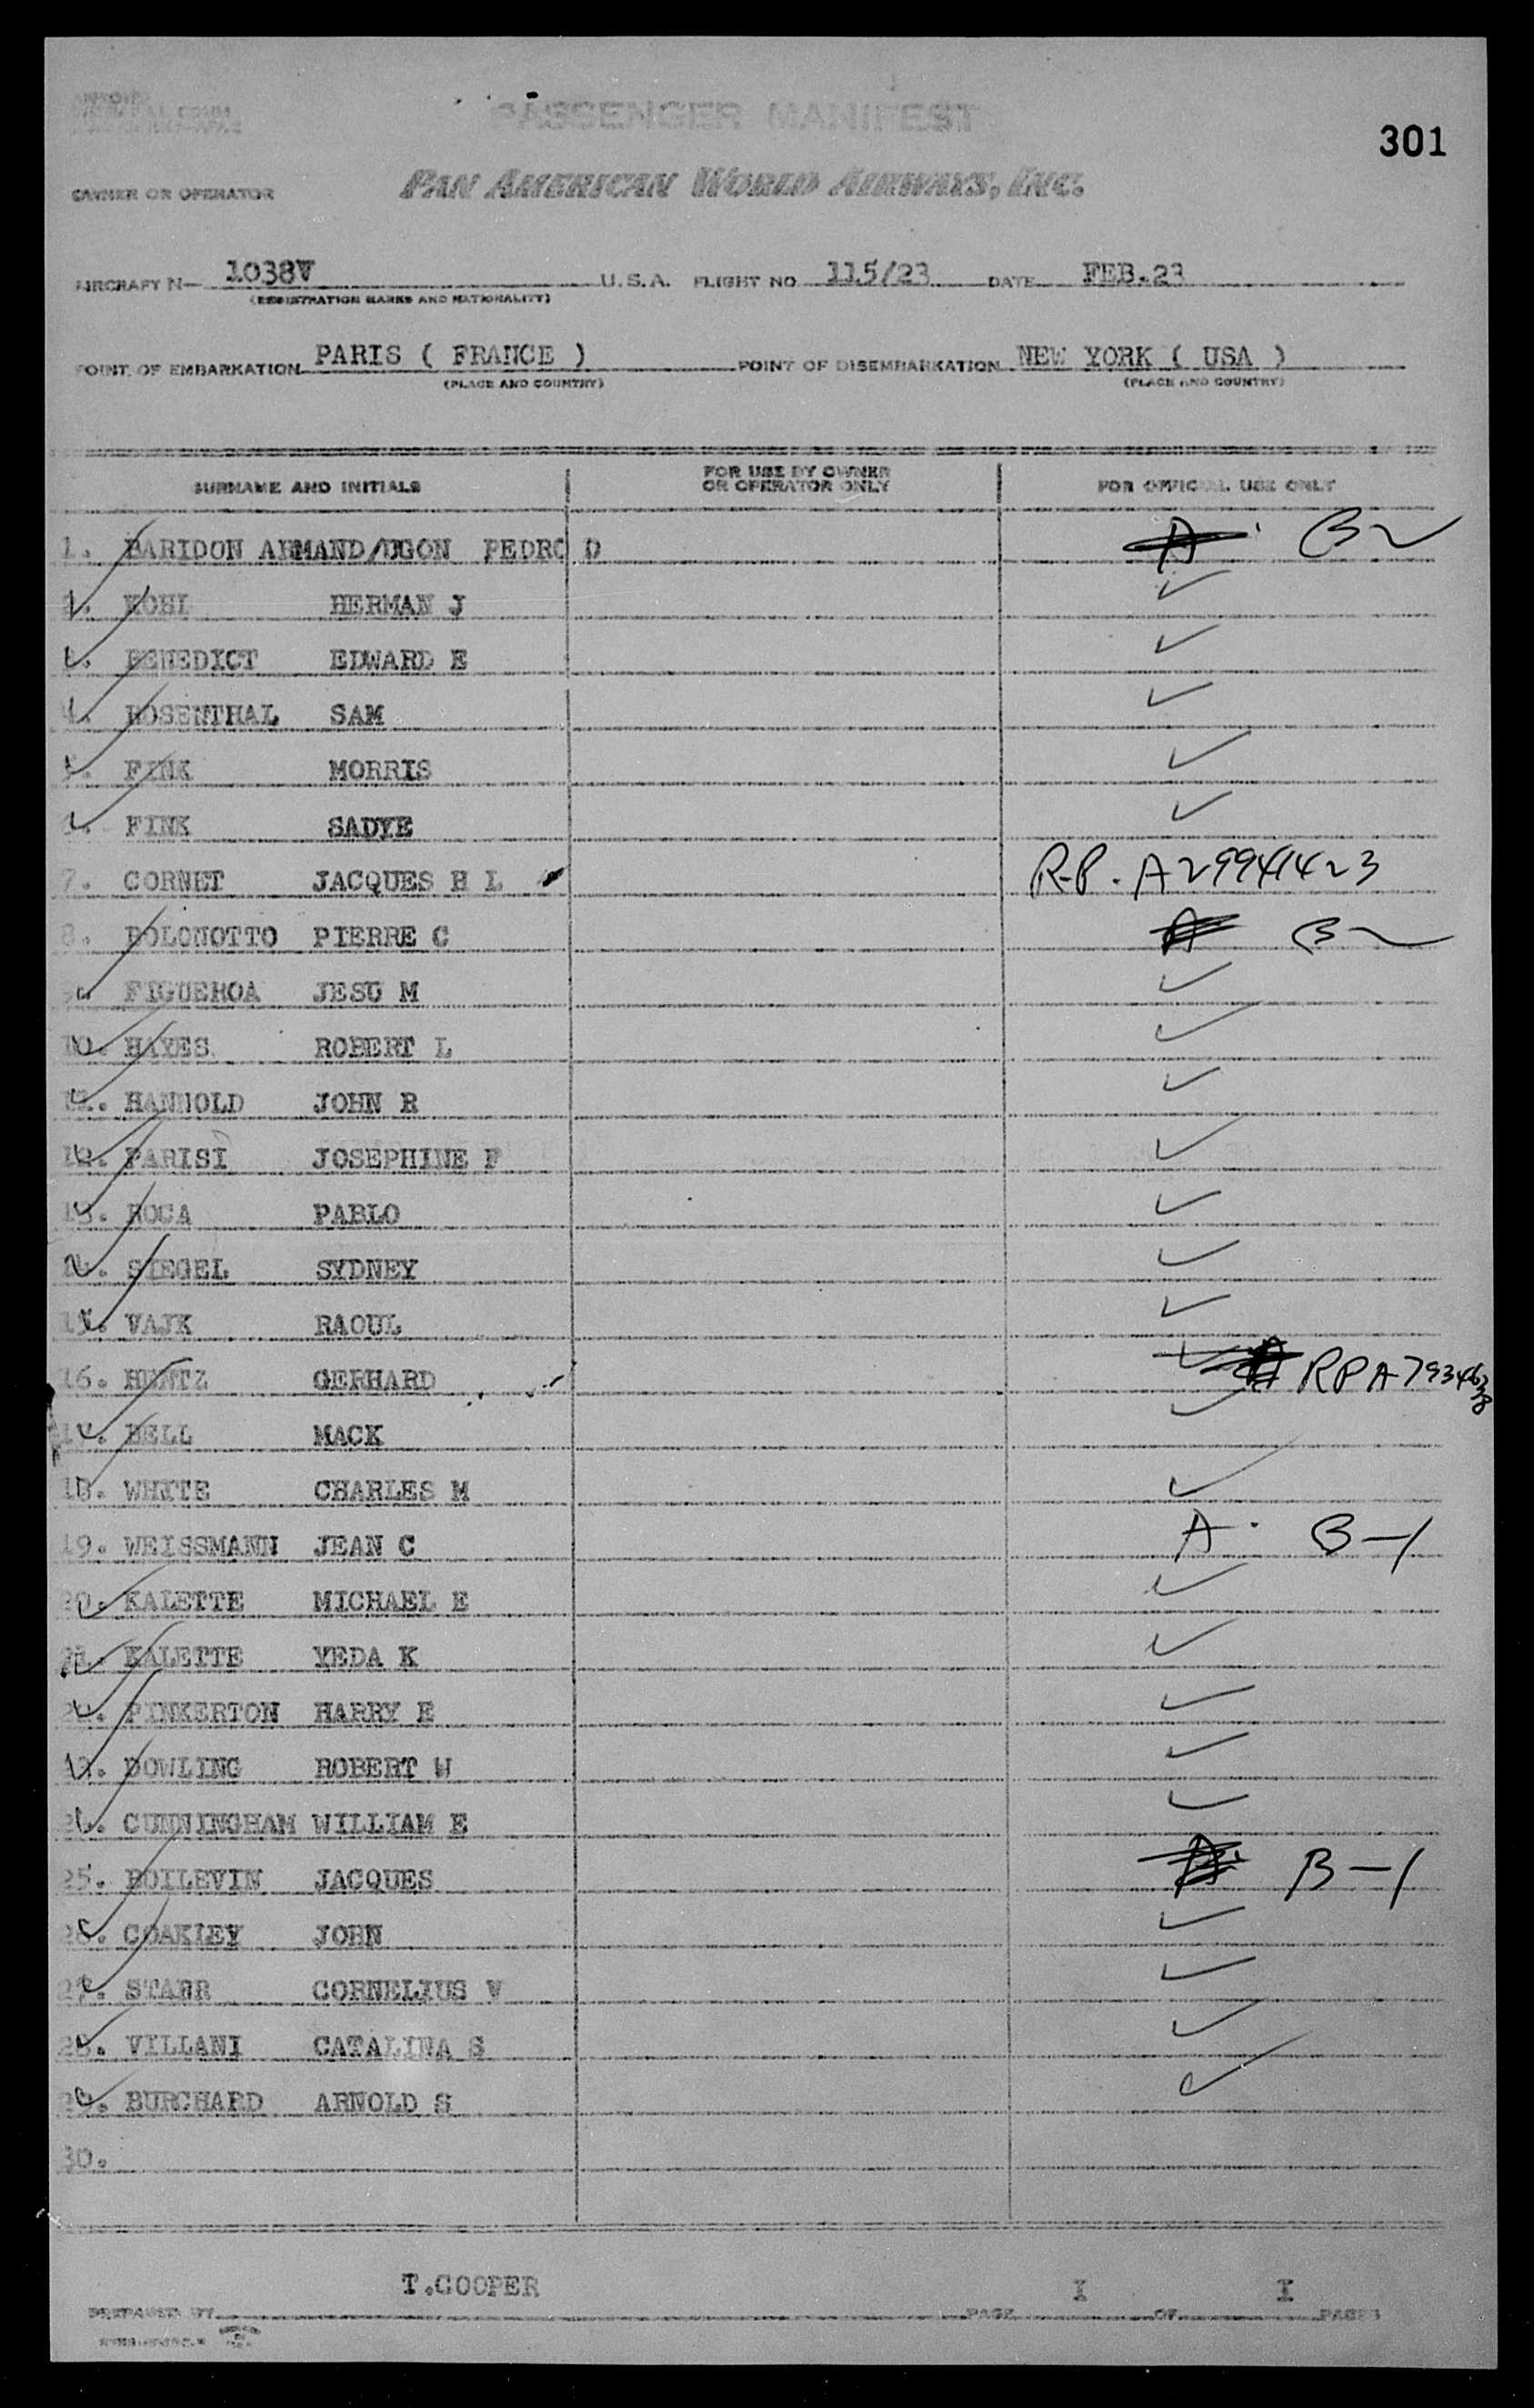 PASSENGER MANIFEST
301
OWNER OR OPERATOR PAN AMERICAN WORLD AIRWAYS, INC.
AIRCRAFT N— 1038V U.S.A. FLIGHT NO 115/23 DATE FEB.23
(REGISTRATION MARKS AND NATIONALITY)
POINT OF EMBARKATION PARIS ( FRANCE ) POINT OF DISEMBARKATION NEW YORK ( USA )
(PLACE AND COUNTRY) (PLACE AND COUNTRY)
SURNAME AND INITIALS FOR USE BY OWNER OR OPERATOR ONLY FOR OFFICIAL USE ONLY
1. BARIDON ARMAND/UGON PEDRO D A B2
2. KOHL HERMAN J
3. BENEDICT EDWARD E
4. ROSENTHAL SAM
5. FINK MORRIS
6. FINK SADYE
7. CORNET JACQUES H L R.P. A2994423
8. BOLONOTTO PIERRE C A B2
9. FIGUEROA JESU M
10. HAYES ROBERT L
11. HANNOLD JOHN R
12. PARISI JOSEPHINE F
13. ROCA PABLO
14. SIEGEL SYDNEY
15. VAJK RAOUL
16. HENTZ GERHARD RPA
17. BELL MACK
18. WHITE CHARLES M
19. WEISSMANN JEAN C A. B-1
20. KALETTE MICHAEL E
21. KALETTE VEDA K
22. PINKERTON HARRY E
23. DOWLING ROBERT W
24. CUNNINGHAM WILLIAM E
25. BOILEVIN JACQUES B-1
26. COAKLEY JOHN
27. STARR CORNELIUS V
28. VILLANI CATALINA S
29. BURCHARD ARNOLD S
30.
T.COOPER I I
PREPARED BY PAGE OF PAGES